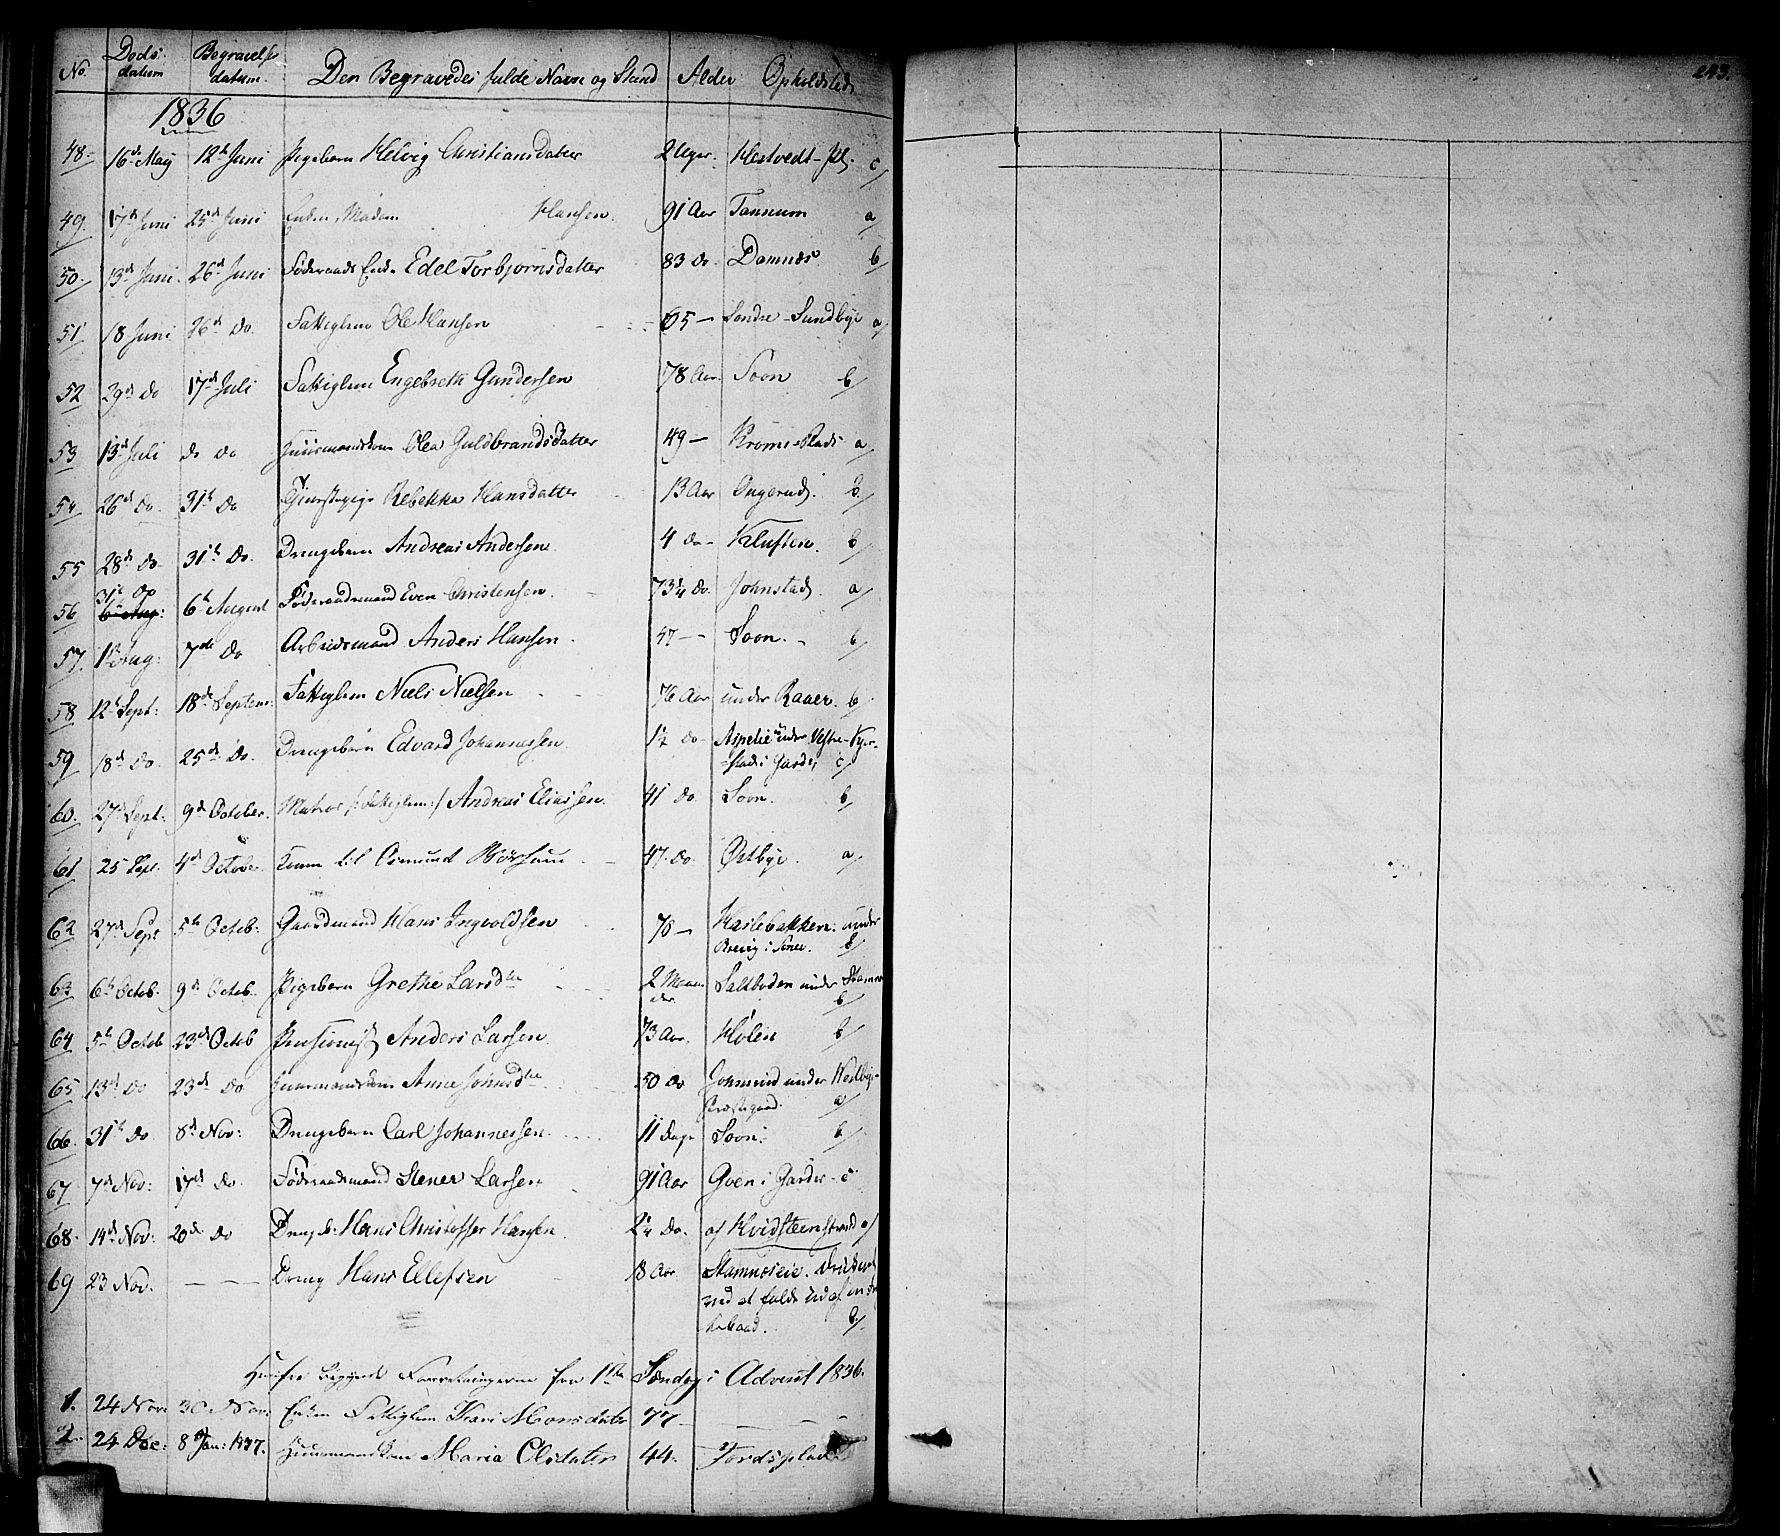 No. Døds datum Begravelse datum. Den Begravedes fulde Navn og Stand Alder Opholdsted
243.
1836
48 16de Maij 12te Juni Pigebarn Helvig Christiansdatter 2 Uger. Hestvedt-pl. c/
49. 17de Juni 25de Juni Enken, Madam Hansen. 91 Aar Tannum a/
50. 13de Juni. 26de Juni Føderaads Enke Edel Torbjørnsdatter 83 Do. Damnæs b/
51 18 Juni 26de Do. Fattiglem Ole Hansen 65 — Søndre-Sundbye a/
52 29de Do 17de Juli Fattiglem Engebreth Gundersen 78 Aar. Soon b/
53 13de Juli do do Huusmandskone Olea Guldbrandsdatter 49 — Krom-Plads a/
54 26de Do. 31te Do Tjenestepige Rebekka Hansdatter 13 Aar Ongerud. b/
55 28de Do. 31te Do. Drengebarn Andreas Andersen 4 Do - Kluften. b/
56 31te Do 6te Aug: 6te August Føderaadsmand Even Christensen. 73¼ Do. Johnstad. a/
57. 1ste Aug: 7de Do Arbeidsmand Anders Hansen. 47 — Soon. b/
58 12te Sept: 18de Septem: Fattiglem Niels Nielsen 76 Aar under Raaer. b/
59 18de Do. 25de Do. Drengebarn Edvard Johannessen. 1½ Do - Aspelie under Vestre-Kjer-
stad i Garder c/
60. 27de Sept: 9de October. Matros /: Fattiglem :/ Andreas Eliassen. 41 Do. Soon. b/
61 25 Sept. 4de Octobr. Kone til Osmund 47. Do. Østbye. a/
62 27de Sept 5te Octob: Gaardmand Hans Ingvoldsen 70 — Haslebakken under
Brevig i Soner. b/
63 6te Octob. 9de Octob. Pigebarn Grethe Larsdtr 2 Maaneder. Saltboden under Stamnes
b/
64 5te Octob 23de Octob Pensionist Anders Larsen 73 Aar. Hølen b/
65 13de Do 23de Do Huusmandskone Anne Johnsdtr 50 Do Johnsrud under Vestbye-
Præstegaard. a/
66. 31te Do 8de Nov: Drengebarn Carl Johannessen. 11 Dage Soon. b/
67 7de Nov: 17de Do. Føderaadsmand Stener Larsen 91 Aar Gven i Garder - c
68. 14de Nov: 20de Do Drengb: Hans Christoffer Hansen. 2¼ Do. af Hvidsteenstrand a/
69 23 Nov. — — — Dreng Hans Ellefsen 18 Aar Stamnæseie. druknet
ved at falde ud af en Fi-
skebaad. b/
Herfra begynde Forretningerne fra 1ste Søndag i Advent 1836.
1. 24 Nov: 30 Nov: Enken Fattiglem Kari Monsdatr 77 — — —
2. 24 Dec: 8 Jan: 1837. Huusmandskone Maria Olsdater 44. Fordsplads